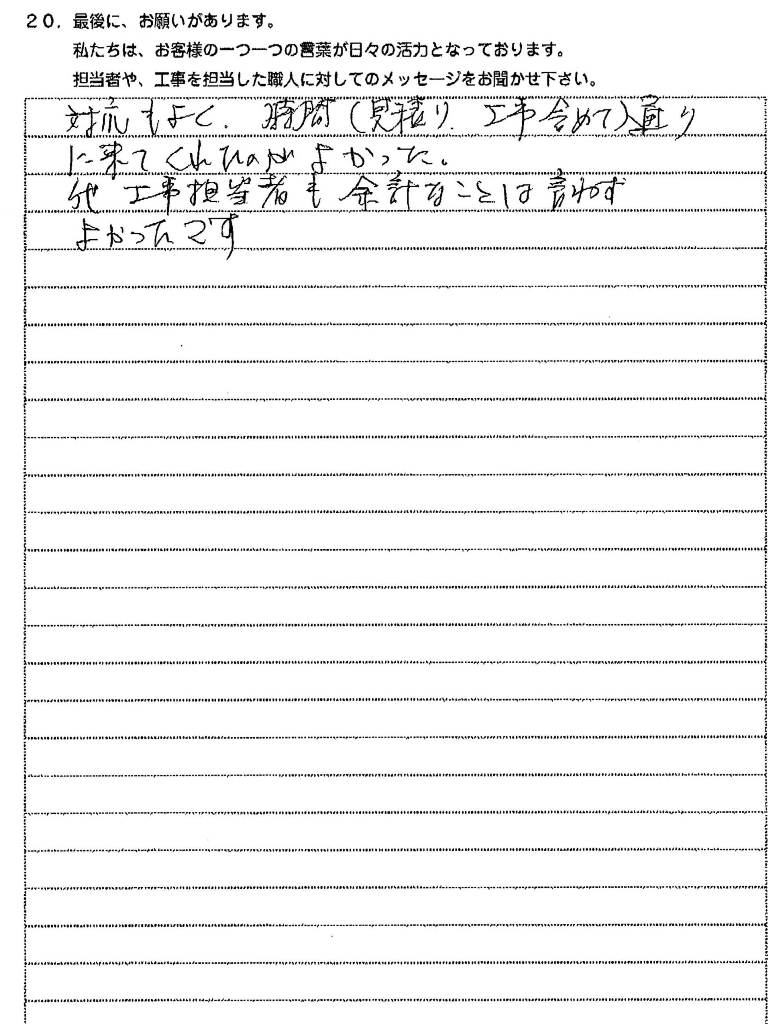 20. 最後に、お願いがあります。
私たちは、お客様の一つ一つの言葉が日々の活力となっております。
担当者や、工事を担当した職人に対してのメッセージをお聞かせ下さい。
対応もよく、時間(見積り、工事含めて)通り
に来てくれたのがよかった。
他工事担当者も余計なことは言わず
よかったです